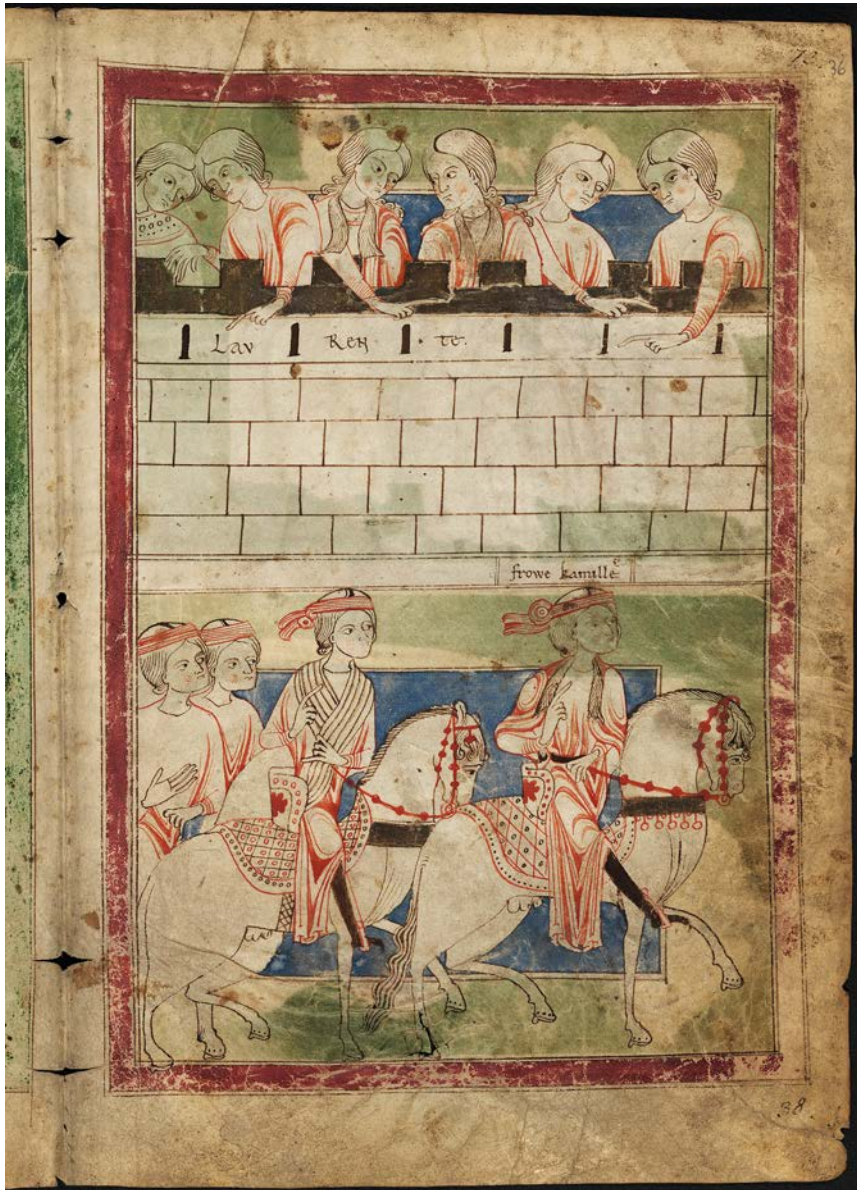 36
Lav Ren te.
frowe kamille
38